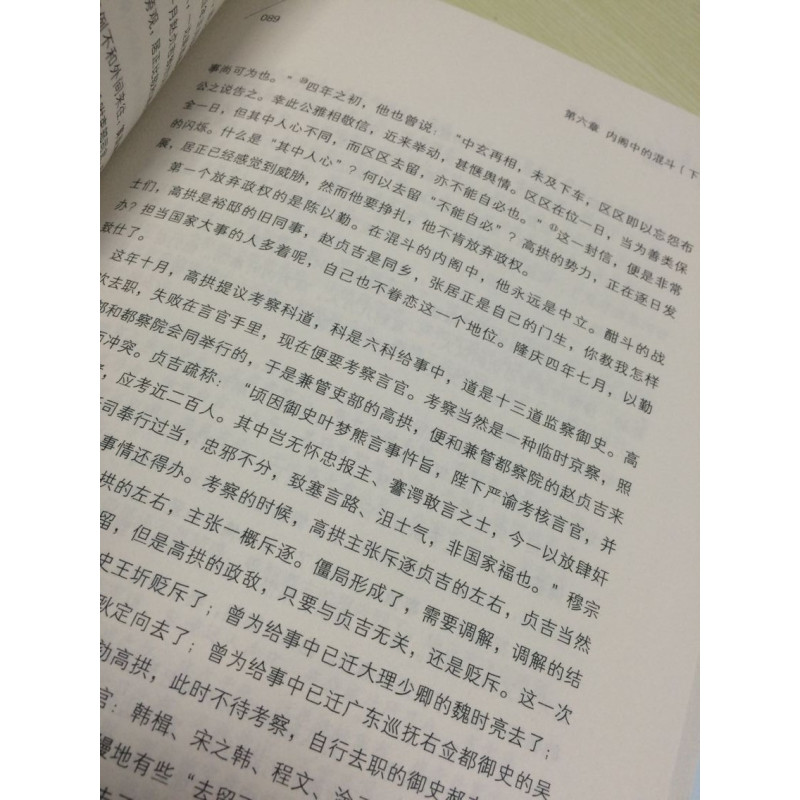 089
第六章 内阁中的混斗（下
事尚可为也。”⑩四年之初，他也曾说：“中玄再相，未及下车，区区即以忘怨布
公之说告之。幸此公雅相敬信，近来举动，甚惬舆情。区区在位一日，当为善类保
全一日，但其中人心不同，而区区去留，亦不能自必也。”⑪这一封信，便是非常
的闪烁。什么是“其中人心”？何以去留“不能自必”？高拱的势力，正在逐日发
展，居正已经感觉到威胁，然而他要挣扎，他不肯放弃政权。
第一个放弃政权的是陈以勤。在混斗的内阁中，他永远是中立。酣斗的战
士们，高拱是裕邸的旧同事，赵贞吉是同乡，张居正是自己的门生，你教我怎样
办？担当国家大事的人多着呢，自己也不眷恋这一个地位。隆庆四年七月，以勤
致仕了。
这年十月，高拱提议考察科道，科是六科给事中，道是十三道监察御史。高
次去职，失败在言官手里，现在便要考察言官。考察当然是一种临时京察，照
部和都察院会同举行的，于是兼管吏部的高拱，便和兼管都察院的赵贞吉来
冲突。贞吉疏称：“顷因御史叶梦熊言事忤旨，陛下严谕考核言官，并
，应考近二百人。其中岂无怀忠报主、謇谔敢言之士，今一以放肆奸
司奉行过当，忠邪不分，致塞言路、沮士气，非国家福也。”穆宗
事情还得办。考察的时候，高拱主张斥逐贞吉的左右，贞吉当然
拱的左右，主张一概斥逐。僵局形成了，需要调解，调解的结
留，但是高拱的政敌，只要与贞吉无关，还是贬斥。这一次
史王圻贬斥了；曾为给事中已迁大理少卿的魏时亮去了；
定向去了；曾为给事中已迁广东巡抚右佥都御史的吴
高拱，此时不待考察，自行去职的御史郝
官：韩楫、宋之韩、程文、涂
漫地有些“去留